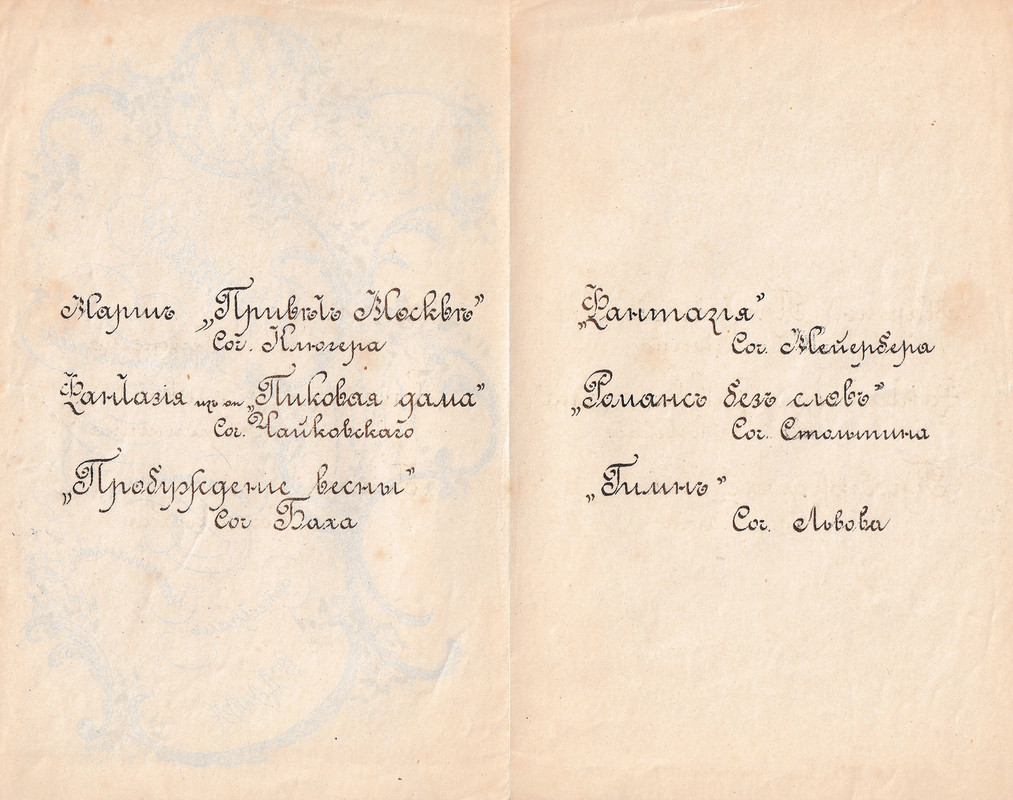 Маршъ „Привѣтъ Москвѣ”
Соч. Клюгера
Фантазія изъ оп „Пиковая дама”
Соч. Чайковскаго
„Пробужденіе весны”
Соч Баха
„Фантазія”
Соч. Мейербера
„Романсъ безъ словъ”
Соч. Столыпина
„Гимнъ”
Соч. Львова